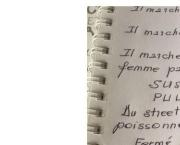 Il march
Il march
Il marche
femme pa
SUS
PUL
Du street
poissonn
Fermé